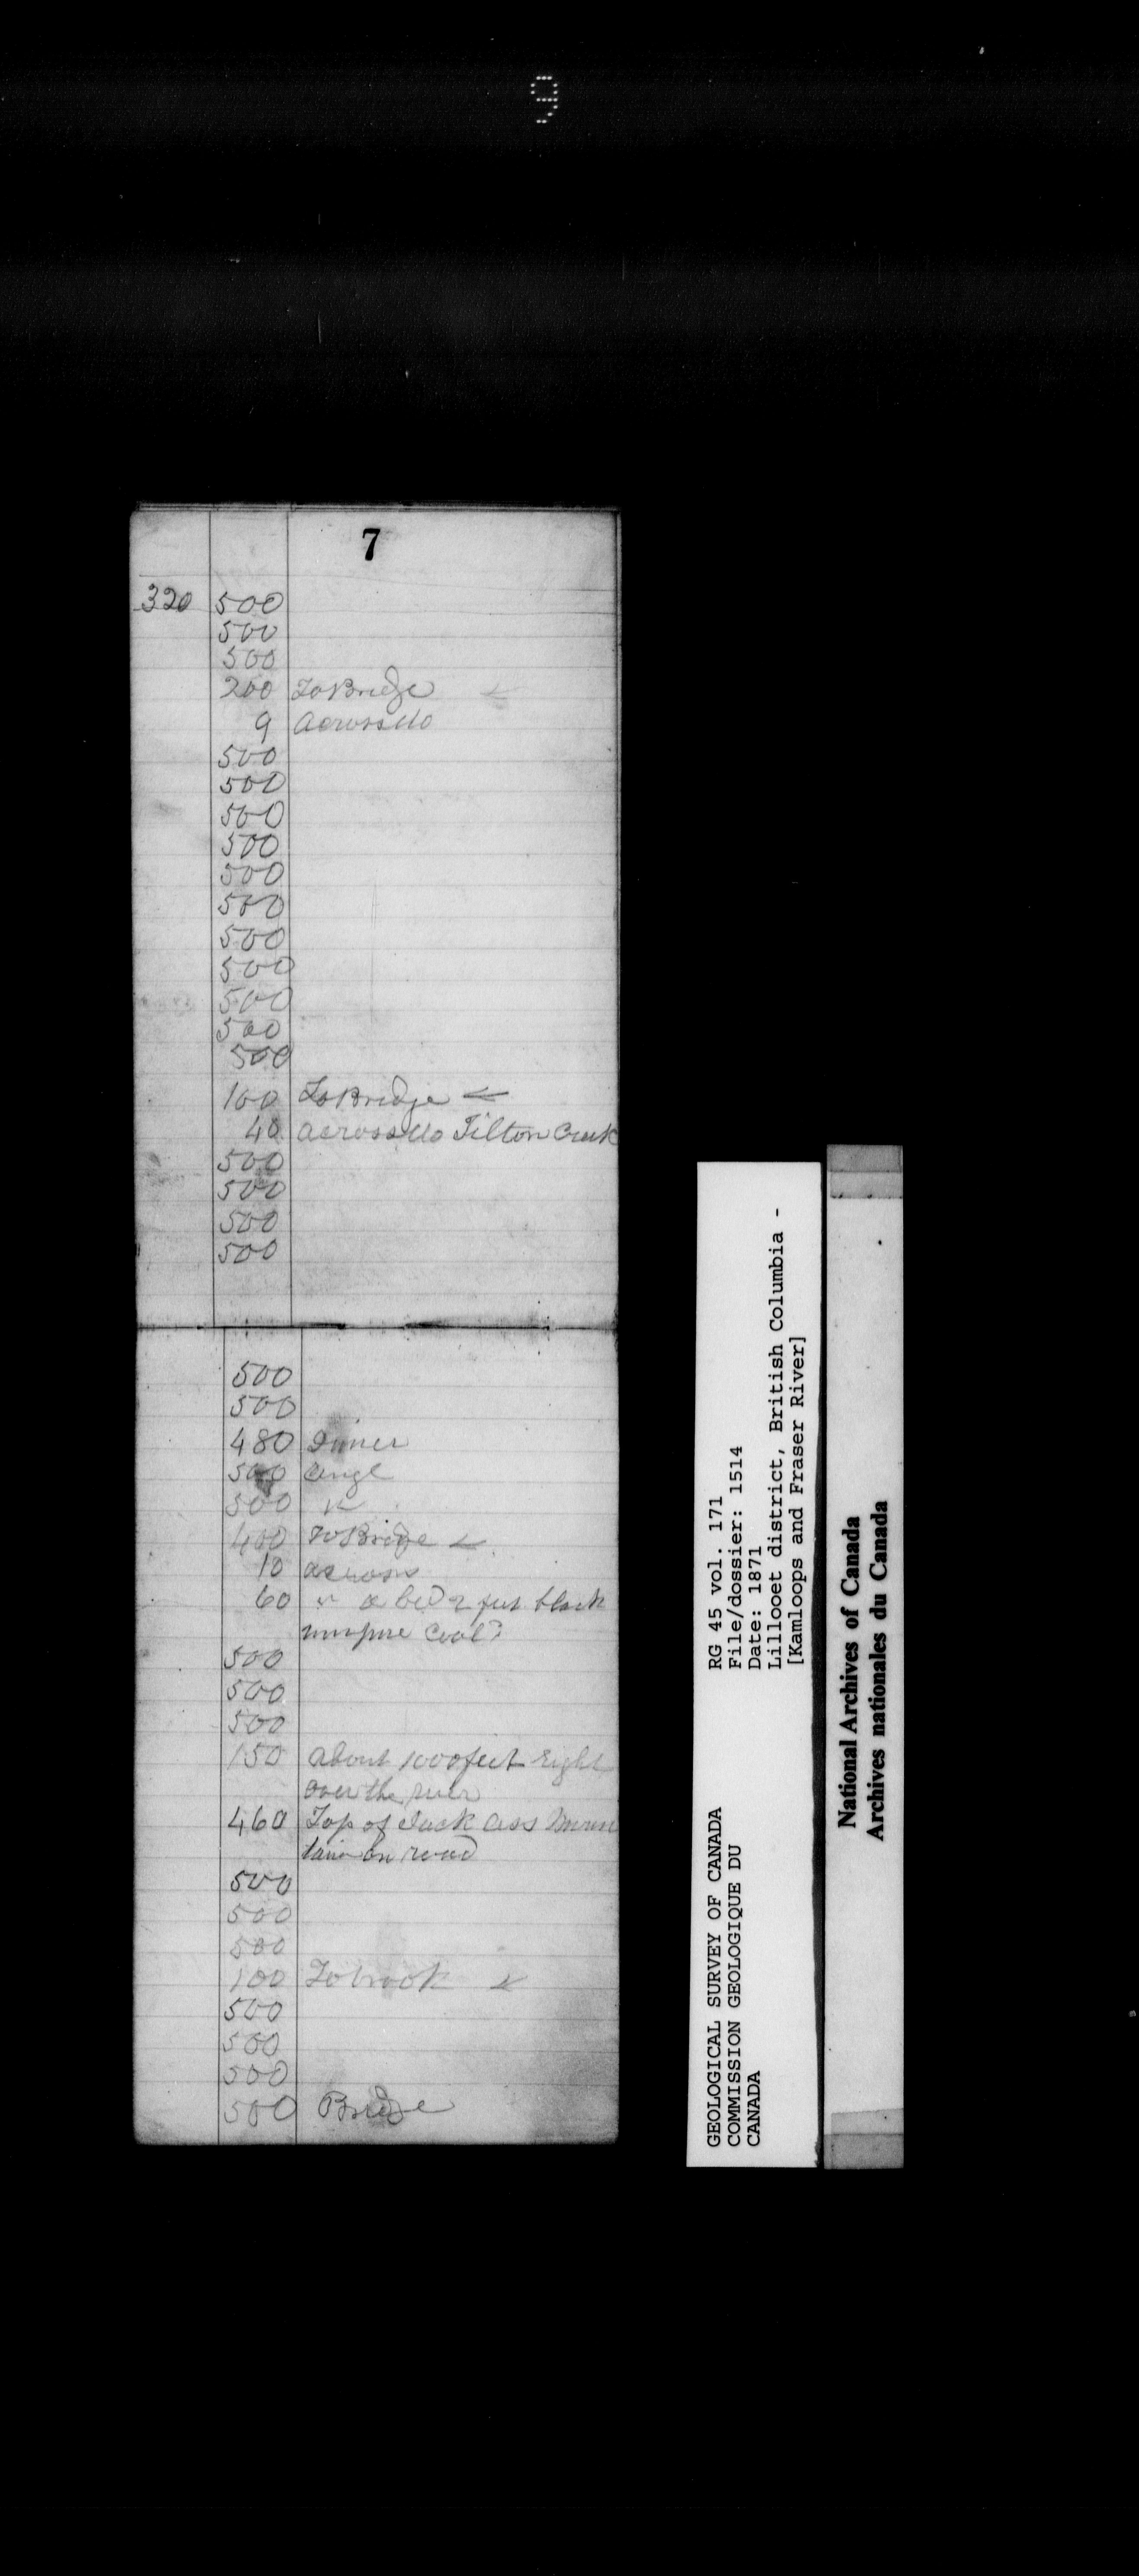 9
7
320 500
500
500
200 To Bridge <
9 across do
500
500
500
500
500
500
500
500
500
500
500
100 To Bridge <
40 across do Tilton Creek
500
500
500
500
500
500
480 Dinner
500 Angl
500
400 To Bridge <
10 across
60 a bed 2 feet black
impure Coal?
500
500
500
150 about 1000 feet right
over the river
460 Top of Jack Ass Moun
tain on road
500
500
500
100 To brook <
500
500
500
500 Bridge
RG 45 vol. 171
File/dossier: 1514
Date: 1871
Lillooet district, British Columbia -
[Kamloops and Fraser River]
GEOLOGICAL SURVEY OF CANADA
COMMISSION GEOLOGIQUE DU
CANADA
National Archives of Canada
Archives nationales du Canada